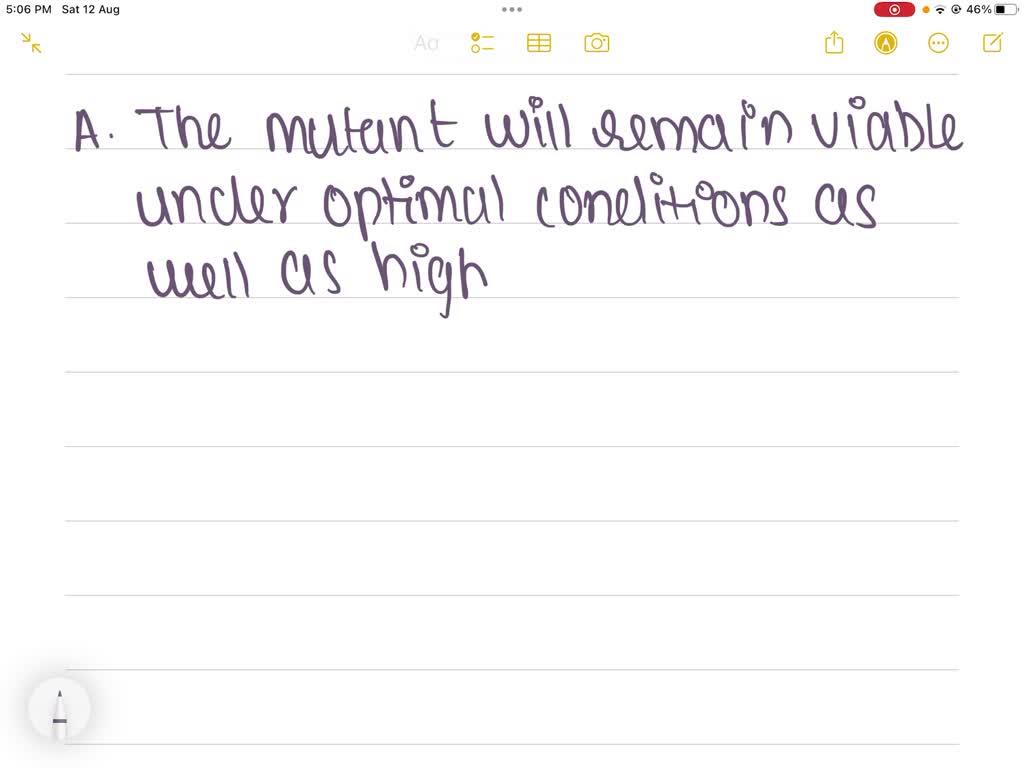 5:06 PM Sat 12 Aug
46%
Aa
A. The mutant will remain viable
under optimal conditions as
well as high